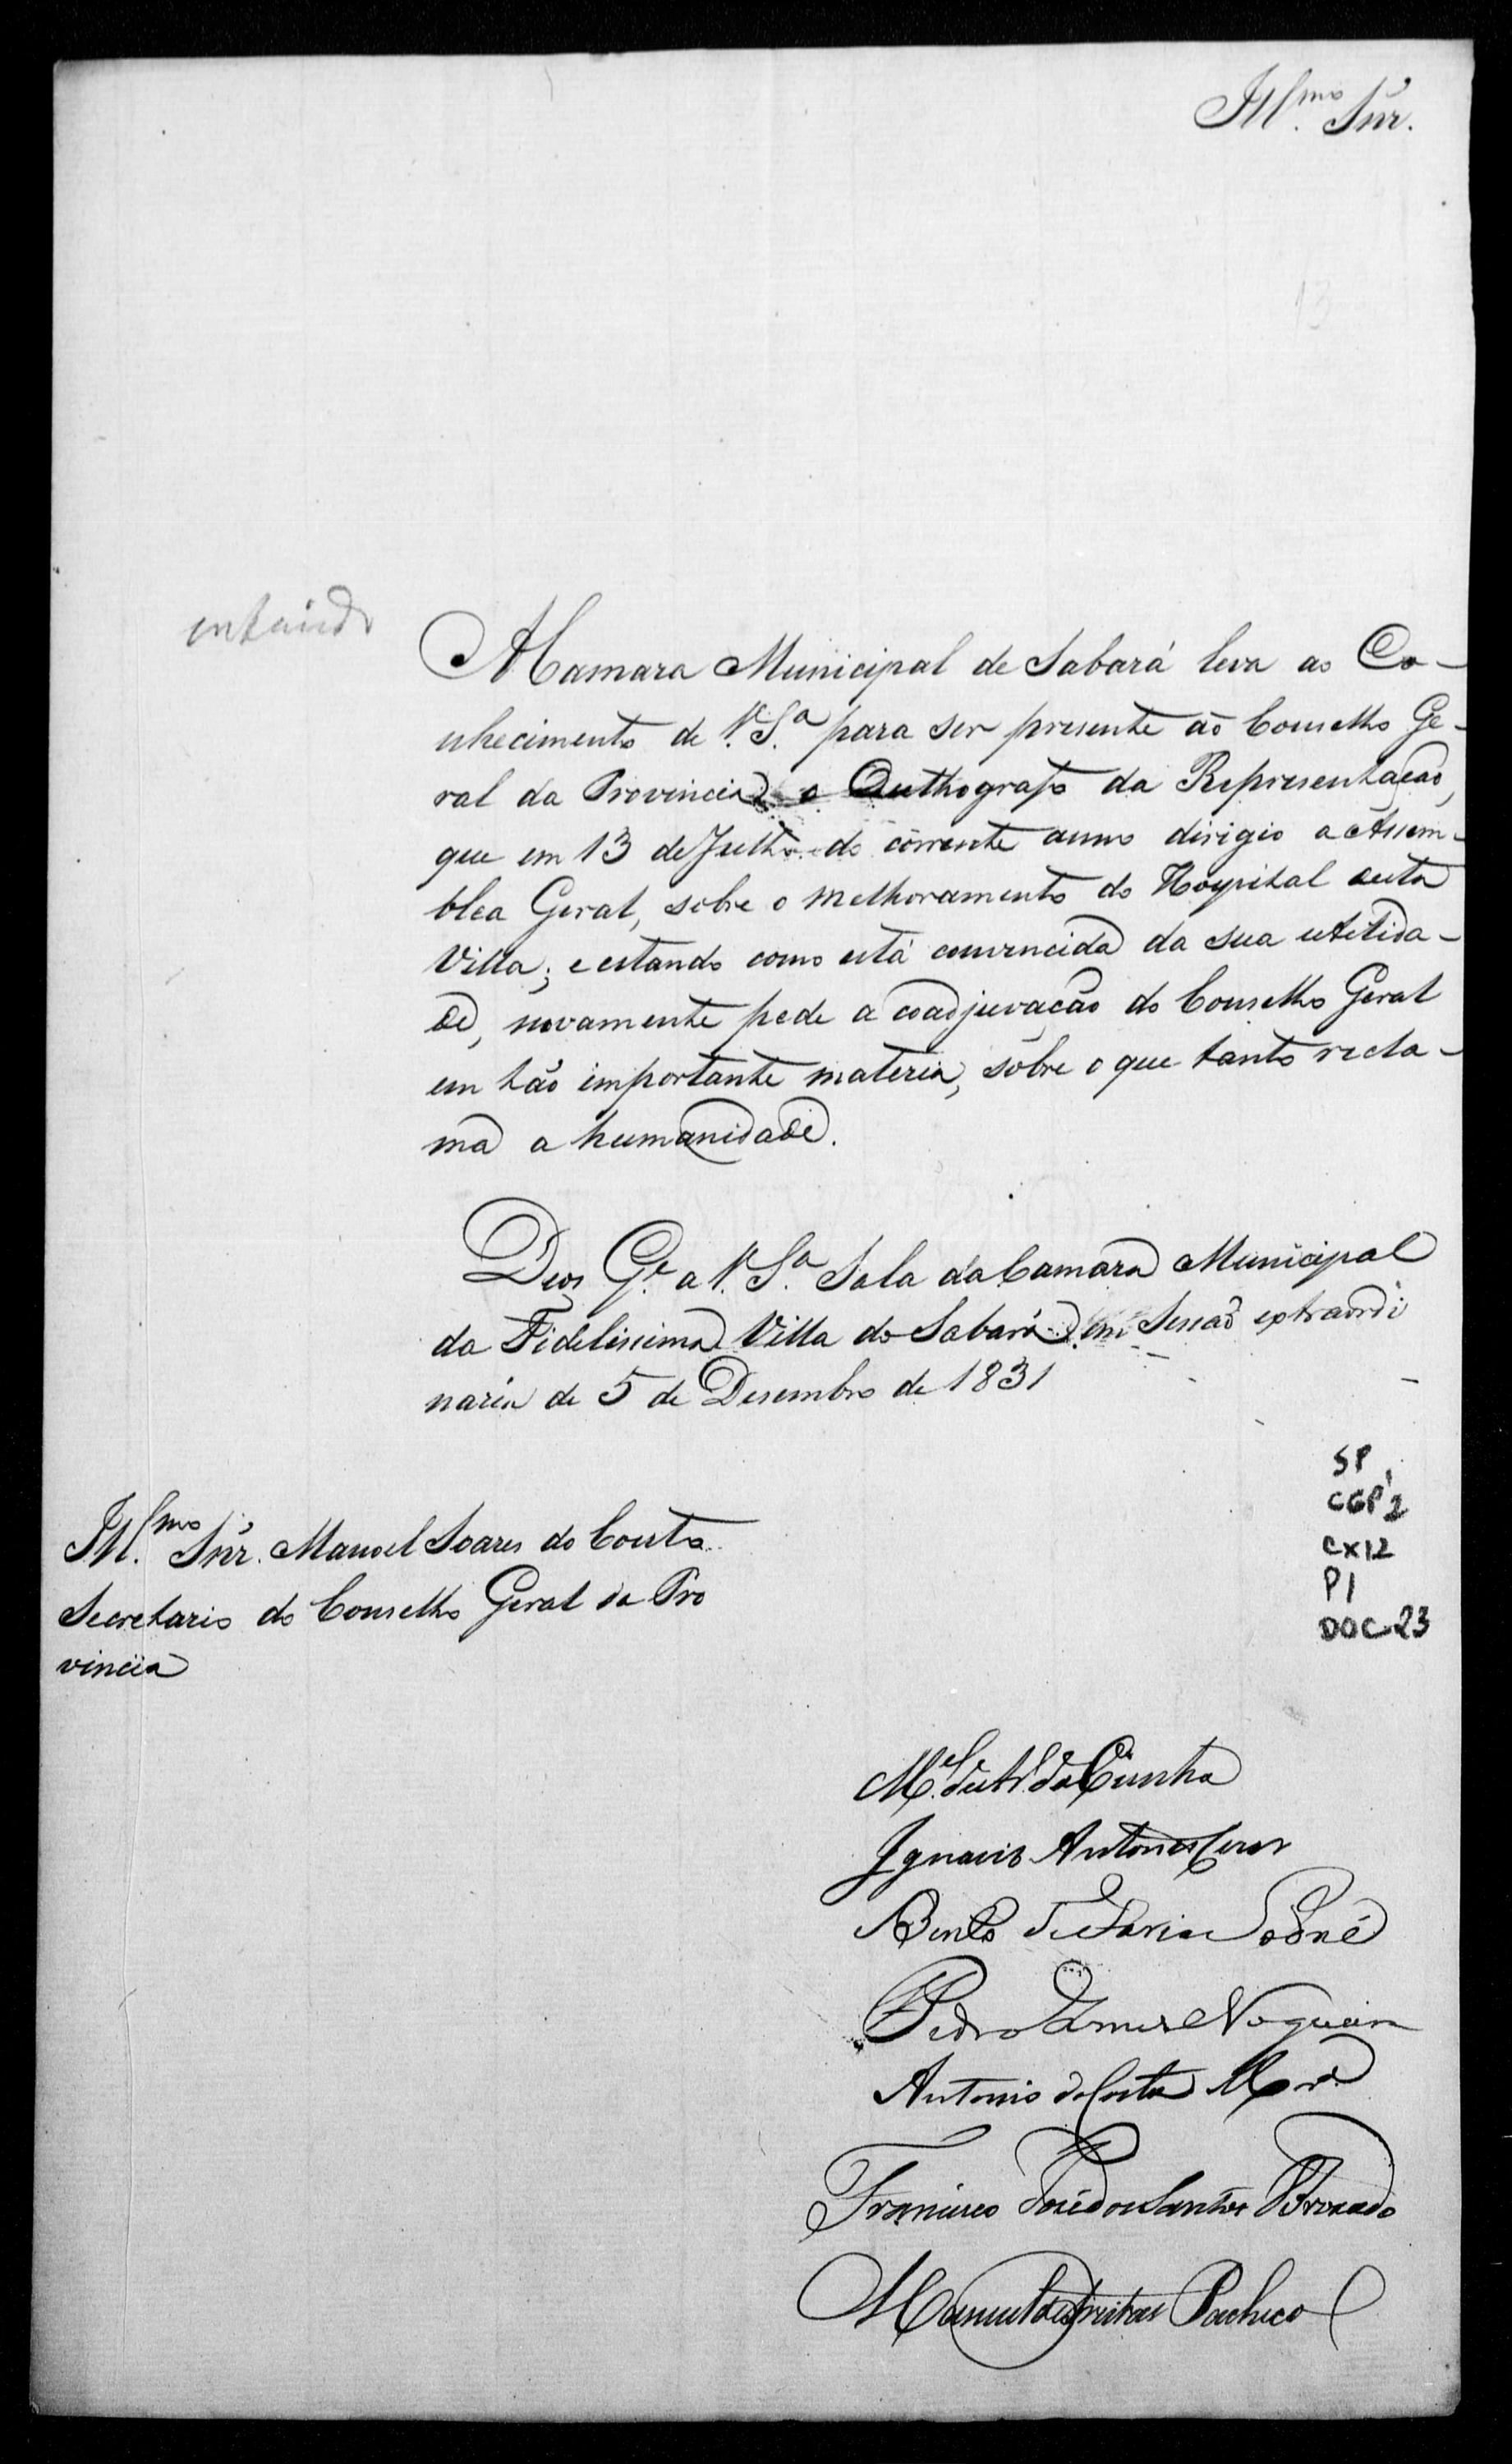 Ill.mo Snr.
13
A Camara Municipal de Sabará leva ao Co-
nhecimento de V. S.a para ser presente ao Conselho Ge-
ral da Provincia o Authografo da Representação,
que em 13 de Julho do corrente anno dirigio a Assem-
blea Geral, sobre o melhoramento do Hospital desta
Villa; e estando como está convencida da sua utilida-
de, novamente pede a coadjuvação do Conselho Geral
em tão importante materia, sobre o que tanto recla-
ma a humanidade.
Deos G.e a V. S.a Sala da Camara Municipal
da Fidelissima Villa do Sabará em Sessão extraordi
naria de 5 de Desembro de 1831
SP
CGP 2
CX12
P1
DOC-23
Ill.mo Snr. Manoel Soares do Couto
Secretario do Conselho Geral da Pro
vincia
M.el da Cunha
Ignacio Antonio Cezar
Bento de Faria Sodré
Pedro Gomes Nogueira
Antonio da Costa Mor.a
Francisco José dos Santos Brocado
Manuel de Freitas Pacheco